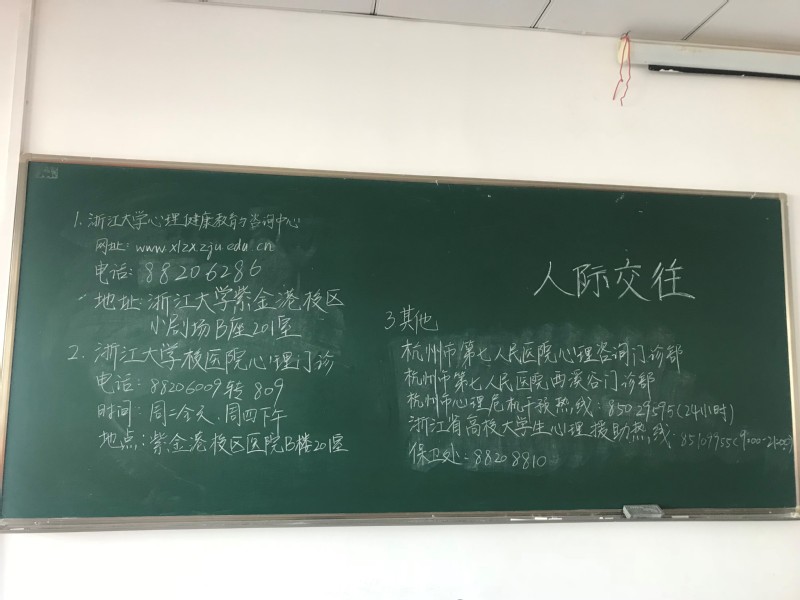 1. 浙江大学心理健康教育与咨询中心
网址: www.xlzx.zju.edu.cn
电话: 88206286
地址: 浙江大学紫金港校区
小剧场B座201室
2. 浙江大学校医院心理门诊
电话: 88206009转809
时间: 周二全天、周四下午
地点: 紫金港校区医院B楼201室
人际交往
3 其他
杭州市第七人民医院心理咨询门诊部
杭州市第七人民医院西溪谷门诊部
杭州市心理危机干预热线: 85029595(24小时)
浙江省高校大学生心理援助热线: 85109955(9:00-21:00)
保卫处-88208810